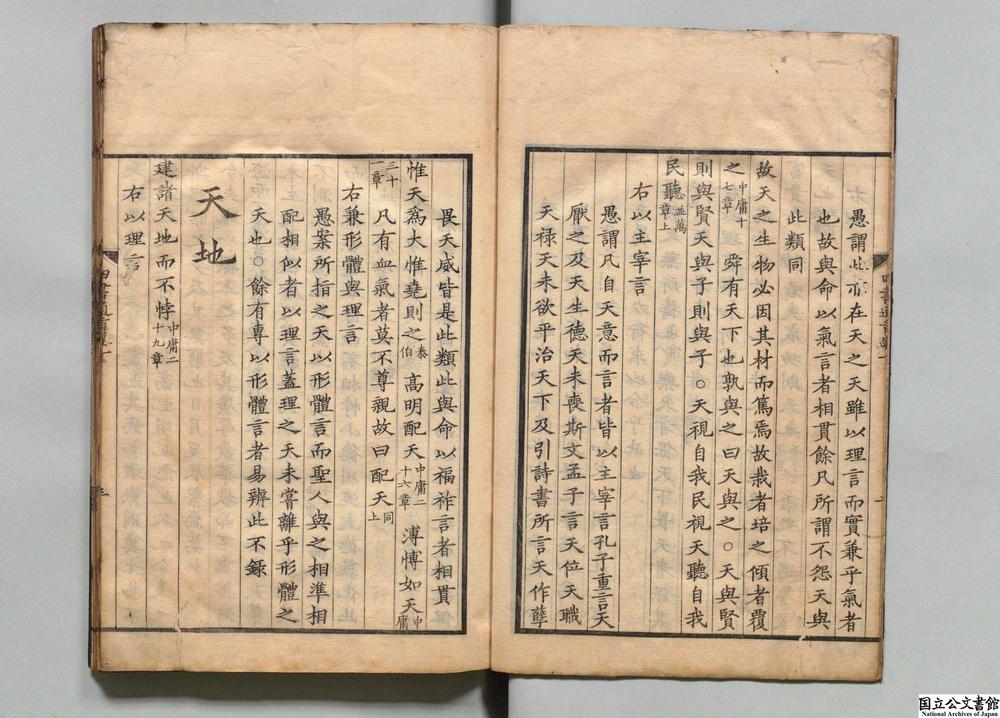 愚謂此亦在天之天雖以理言而實兼乎氣者
也故與命以氣言者相貫餘凡所謂不怨天與
此類同
故天之生物必因其材而篤焉故栽者培之傾者覆
之中庸十七章 舜有天下也孰與之曰天與之○天與賢
則與賢天與子則與子○天視自我民視天聽自我
民聽並萬章上
右以主宰言
愚謂凡自天意而言者皆以主宰言孔子重言天
厭之及天生德天未喪斯文孟子言天位天職
天祿天未欲平治天下及引詩書所言天作孽
畏天威皆是此類此與命以福祚言者相貫
惟天爲大惟堯則之泰伯 高明配天中庸二十六章 溥愽如天中庸
三十一章 凡有血氣者莫不尊親故曰配天同上
右兼形體與理言
愚案所指之天以形體言而聖人與之相準相
配相似者以理言蓋理之天未嘗離乎形體之
天也○餘有專以形體言者易辨此不錄
天地
建諸天地而不悖中庸二十九章
右以理言
国立公文書館
National Archives of Japan